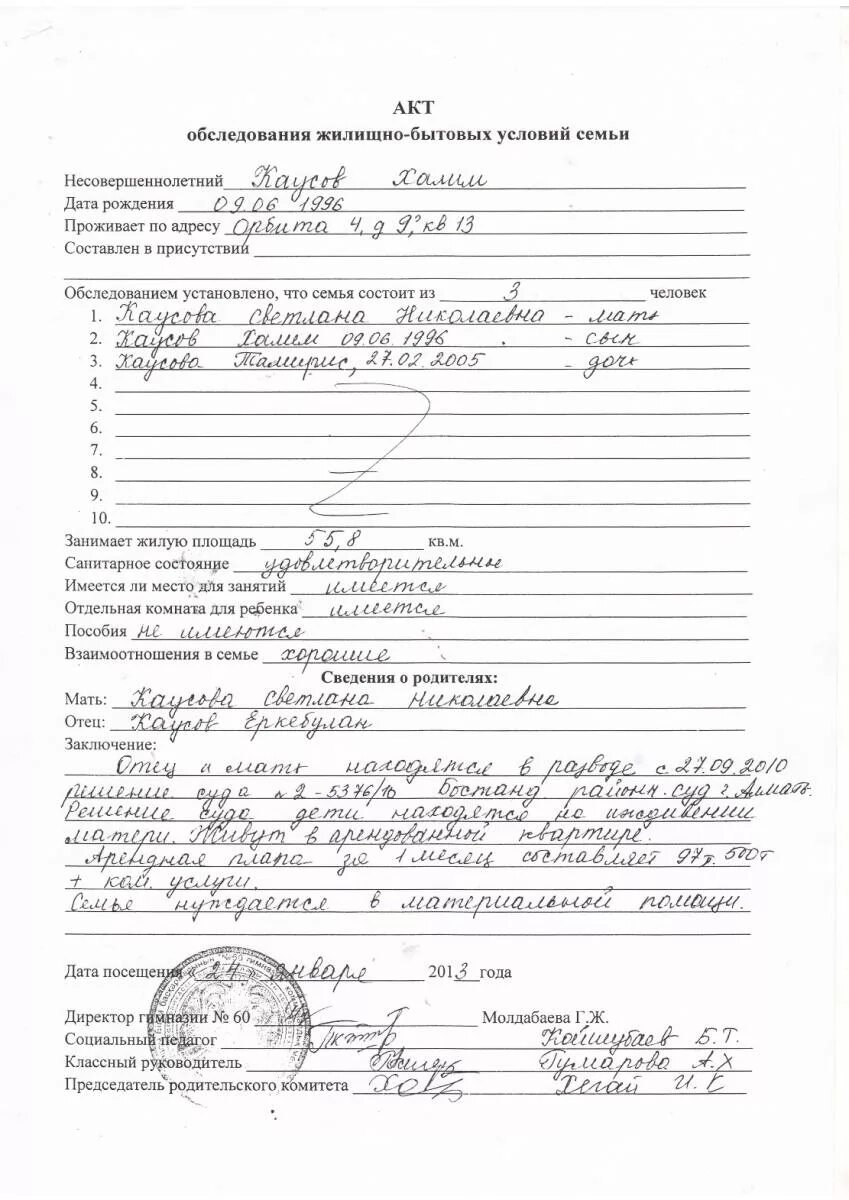 АКТ
обследования жилищно-бытовых условий семьи
Несовершеннолетний Каусов Халим
Дата рождения 09.06 1996
Проживает по адресу Орбита 4, д 9, кв 13
Составлен в присутствии
Обследованием установлено, что семья состоит из 3 человек
1. Каусова Светлана Николаевна - мать
2. Каусов Халим 09.06.1996 - сын
3. Каусова Тамирис, 27.02.2005 - дочь
4.
5.
6.
7.
8.
9.
10.
Занимает жилую площадь 55,8 кв.м.
Санитарное состояние удовлетворительное
Имеется ли место для занятий имеется
Отдельная комната для ребенка имеется
Пособия не имеются
Взаимоотношения в семье хорошие
Сведения о родителях:
Мать: Каусова Светлана Николаевна
Отец: Каусов Еркебулан
Заключение:
Отец и мать находятся в разводе с 27.09.2010
решение суда № 2-5376/10 Бостанд районн. суд г. Алматы.
Решение суда дети находятся на иждивении
матери. Живут в арендованной квартире.
Арендная плата за 1 месяц составляет 97т. 500т
+ ком. услуги.
Семья нуждается в материальной помощи.
Дата посещения « 24 » января 2013 года
Директор гимназии № 60 Молдабаева Г.Ж.
Социальный педагог Койшубаев Б.Т.
Классный руководитель Гумарова А.Х
Председатель родительского комитета Хегай И.К